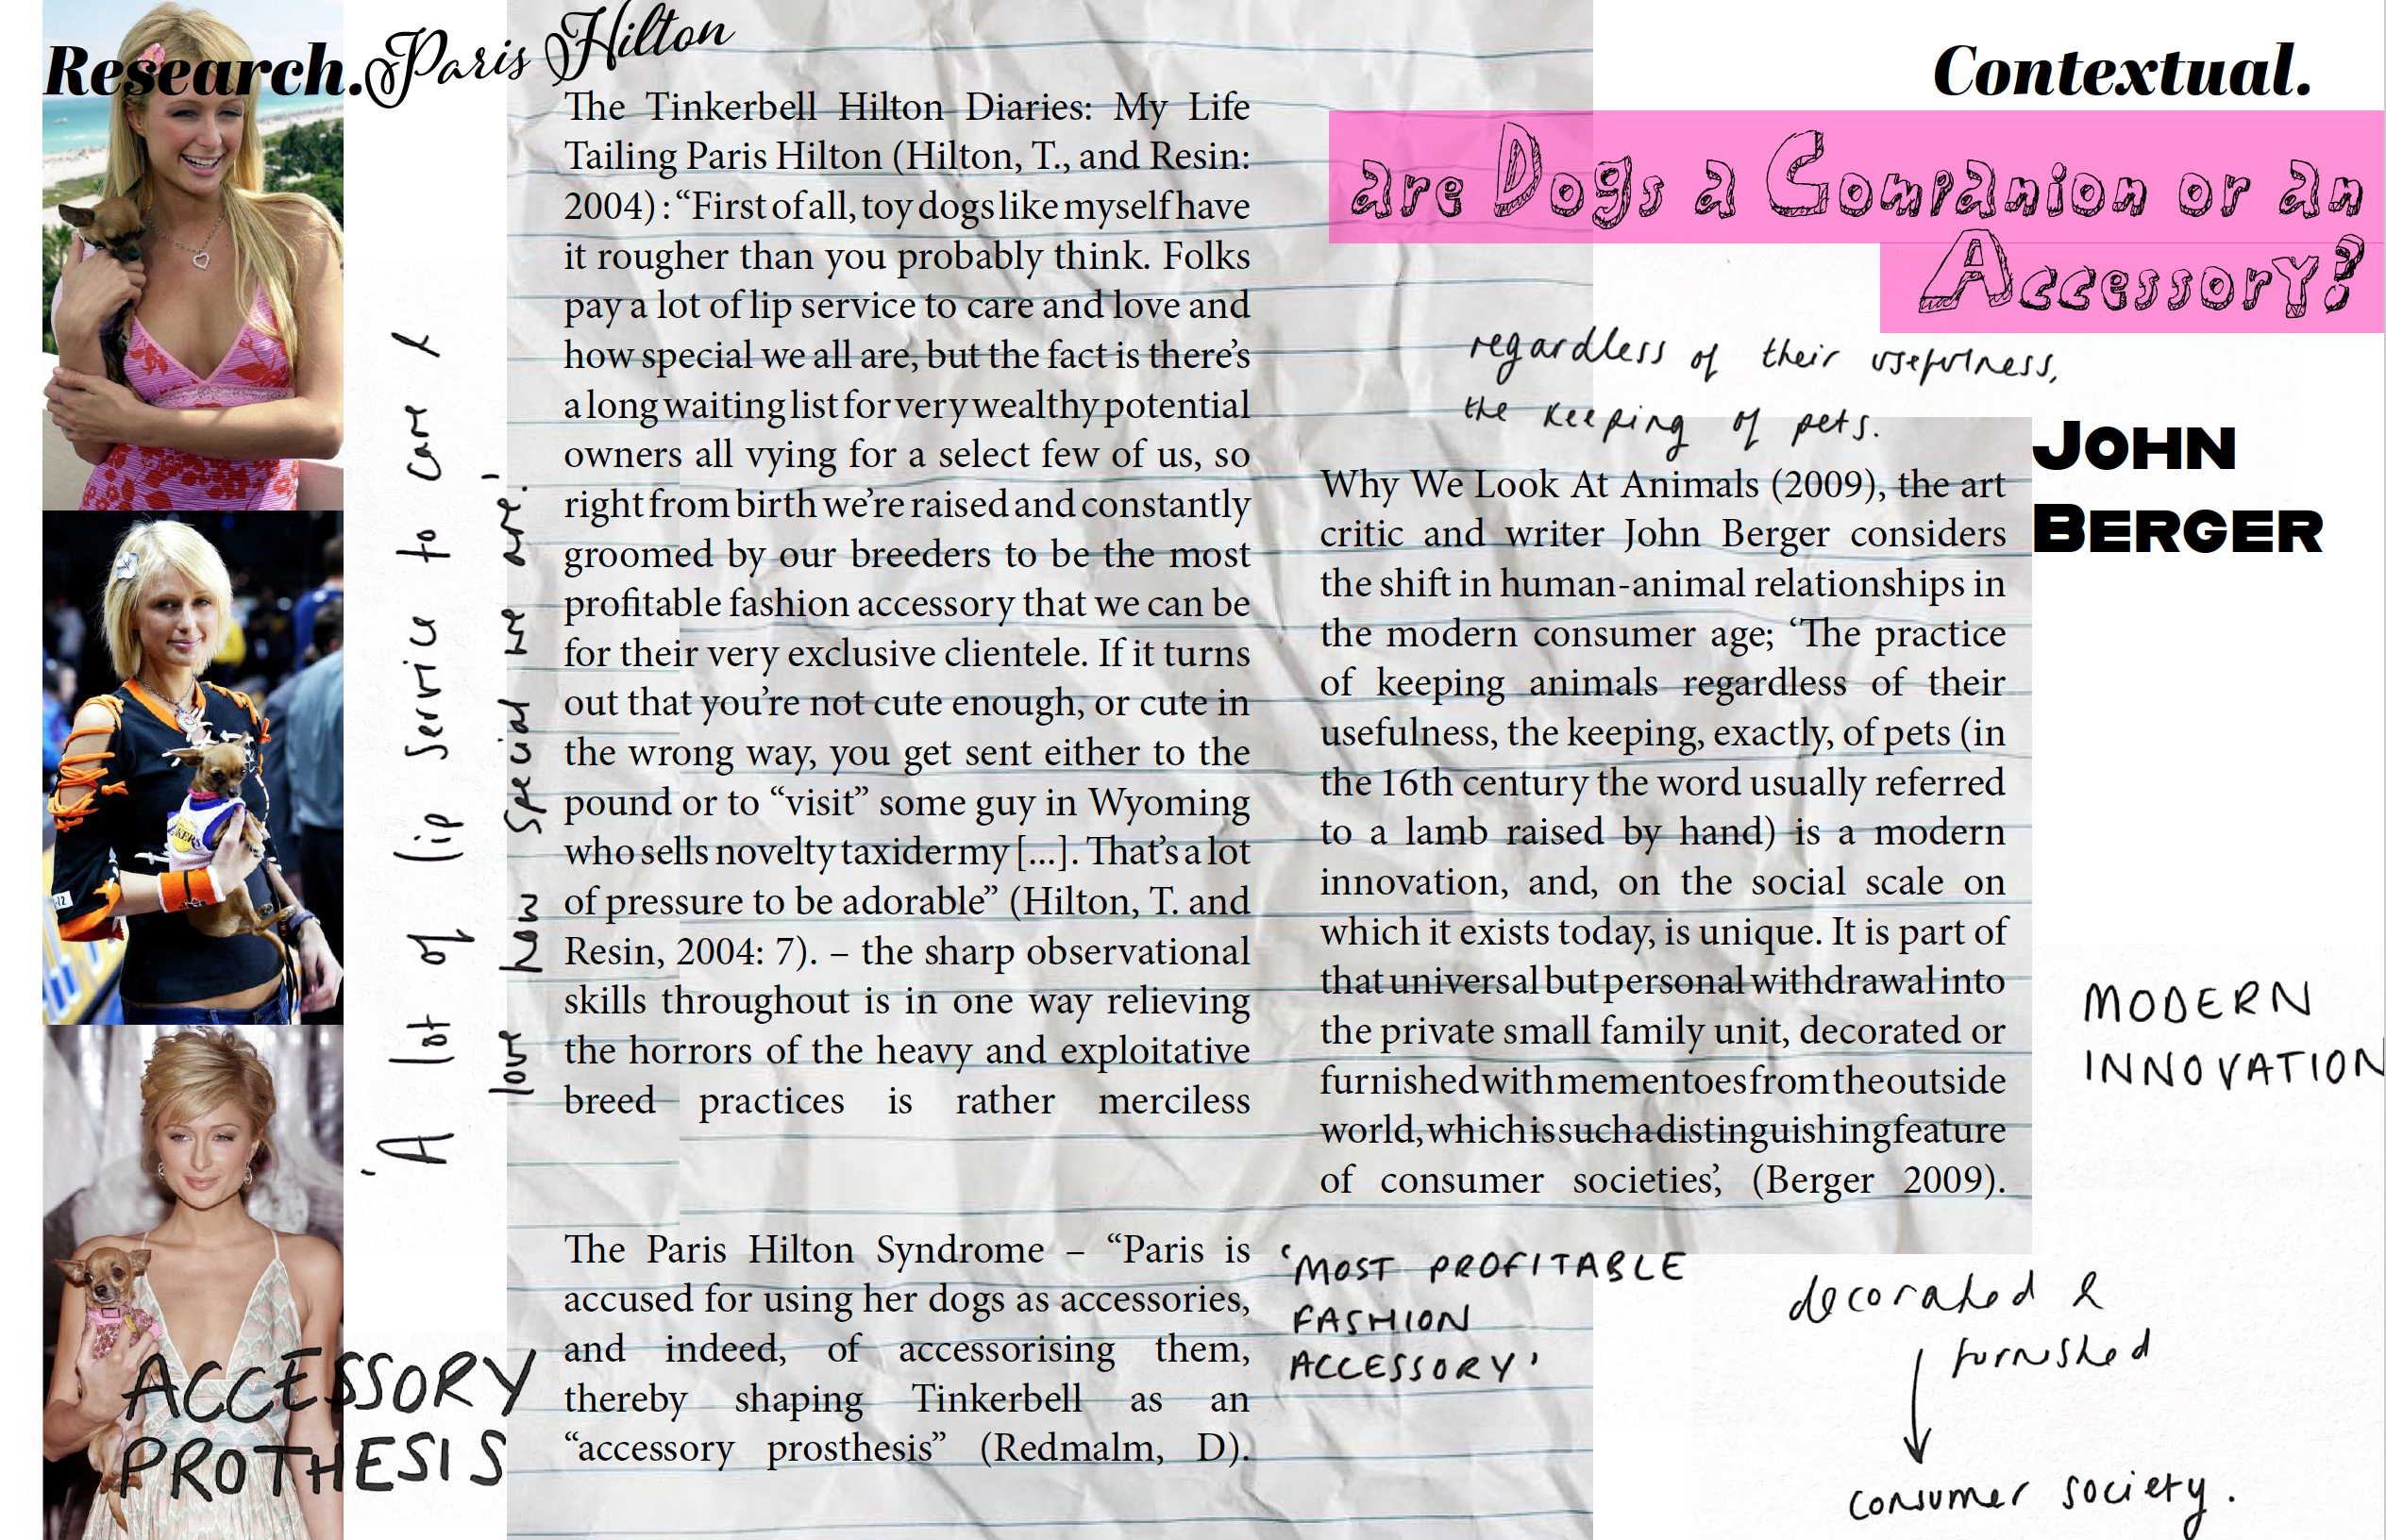 Research. Paris Hilton
The Tinkerbell Hilton Diaries: My Life
Tailing Paris Hilton (Hilton, T., and Resin:
2004) : “First of all, toy dogs like myself have
it rougher than you probably think. Folks
pay a lot of lip service to care and love and
how special we all are, but the fact is there’s
a long waiting list for very wealthy potential
owners all vying for a select few of us, so
right from birth we’re raised and constantly
groomed by our breeders to be the most
profitable fashion accessory that we can be
for their very exclusive clientele. If it turns
out that you’re not cute enough, or cute in
the wrong way, you get sent either to the
pound or to “visit” some guy in Wyoming
who sells novelty taxidermy [...]. That’s a lot
of pressure to be adorable” (Hilton, T. and
Resin, 2004: 7). – the sharp observational
skills throughout is in one way relieving
the horrors of the heavy and exploitative
breed practices is rather merciless
The Paris Hilton Syndrome – “Paris is
accused for using her dogs as accessories,
and indeed, of accessorising them,
thereby shaping Tinkerbell as an
“accessory prosthesis” (Redmalm, D).
‘A lot of lip service to care &
love how special we are.’
LAKERS
12
ACCESSORY
PROTHESIS
Contextual.
are Dogs a Companion or an
Accessory?
regardless of their usefulness,
the keeping of pets.
JOHN
BERGER
Why We Look At Animals (2009), the art
critic and writer John Berger considers
the shift in human-animal relationships in
the modern consumer age; ‘The practice
of keeping animals regardless of their
usefulness, the keeping, exactly, of pets (in
the 16th century the word usually referred
to a lamb raised by hand) is a modern
innovation, and, on the social scale on
which it exists today, is unique. It is part of
that universal but personal withdrawal into
the private small family unit, decorated or
furnished with mementoes from the outside
world, which is such a distinguishing feature
of consumer societies’, (Berger 2009).
MODERN
INNOVATION
‘MOST PROFITABLE
FASHION
ACCESSORY’
decorated &
furnished
consumer society.